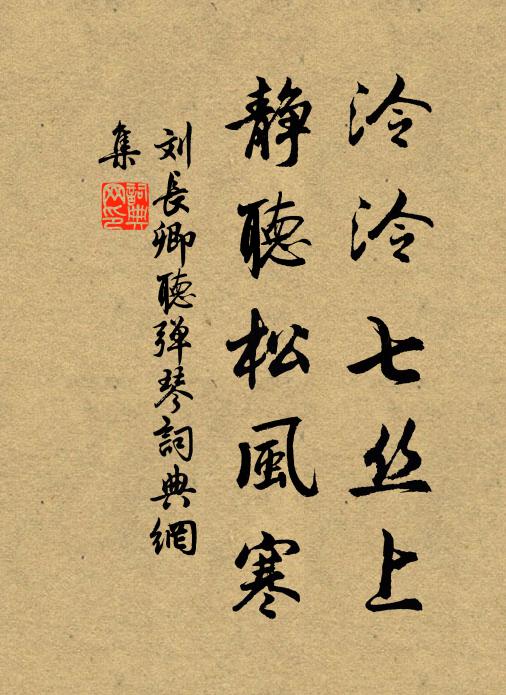 泠泠七丝上
静聽松風寒
刘長卿聽弹琴詞典網
集
詞典网印